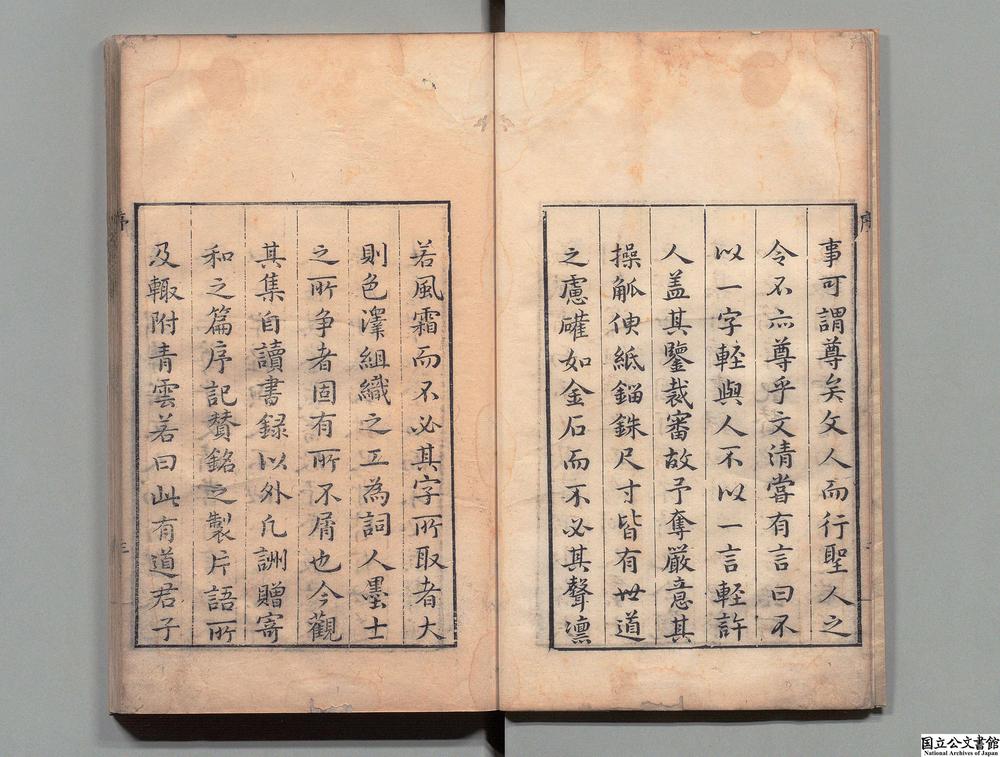 事可謂尊矣文人而行聖人之
令不亦尊乎文清嘗有言曰不
以一字輕與人不以一言輕許
人盖其鑒裁審故予奪嚴意其
操觚使紙錙銖尺寸皆有世道
之慮確如金石而不必其聲凛
若風霜而不必其字所取者大
則色澤組織之工為詞人墨士
之所争者固有所不屑也今觀
其集自讀書録以外凡詶贈寄
和之篇序記賛銘之製片語所
及輙附青雲若曰此有道君子
序
序
三
国立公文書館
National Archives of Japan